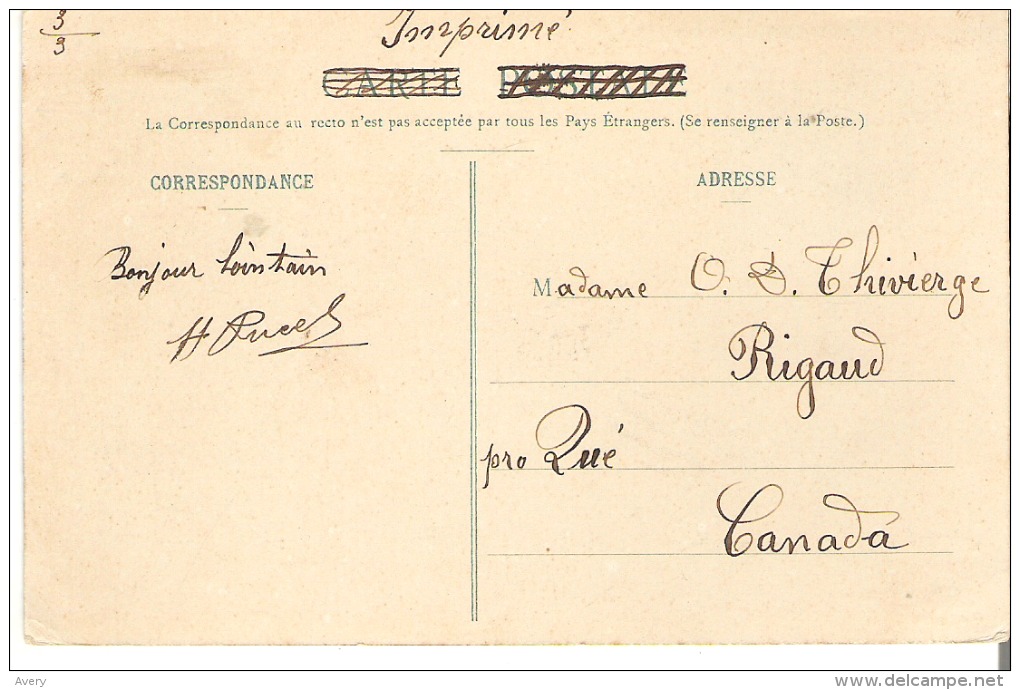 3
3
Imprimé
CARTE POSTALE
La Correspondance au recto n'est pas acceptée par tous les Pays Étrangers. (Se renseigner à la Poste.)
CORRESPONDANCE
Bonjour lointain
ADRESSE
Madame O. D. Thivierge
Rigaud
pro Qué
Canada
Avery
delcampe.net